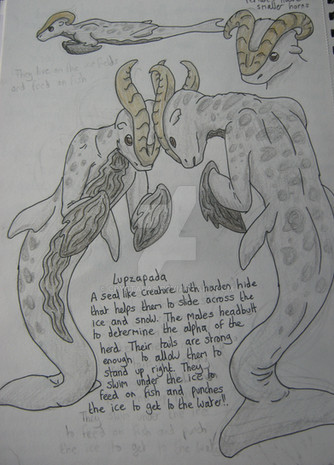 smaller horns
Lupzapada
A seal like creature with harden hide
that helps them to slide across the
ice and snow. The Males headbutt
to determine the alpha of the
herd. Their tails are strong
enough to allow them to
stand up right. They
swim under the ice to
feed on fish and punches
the ice to get to the water!!